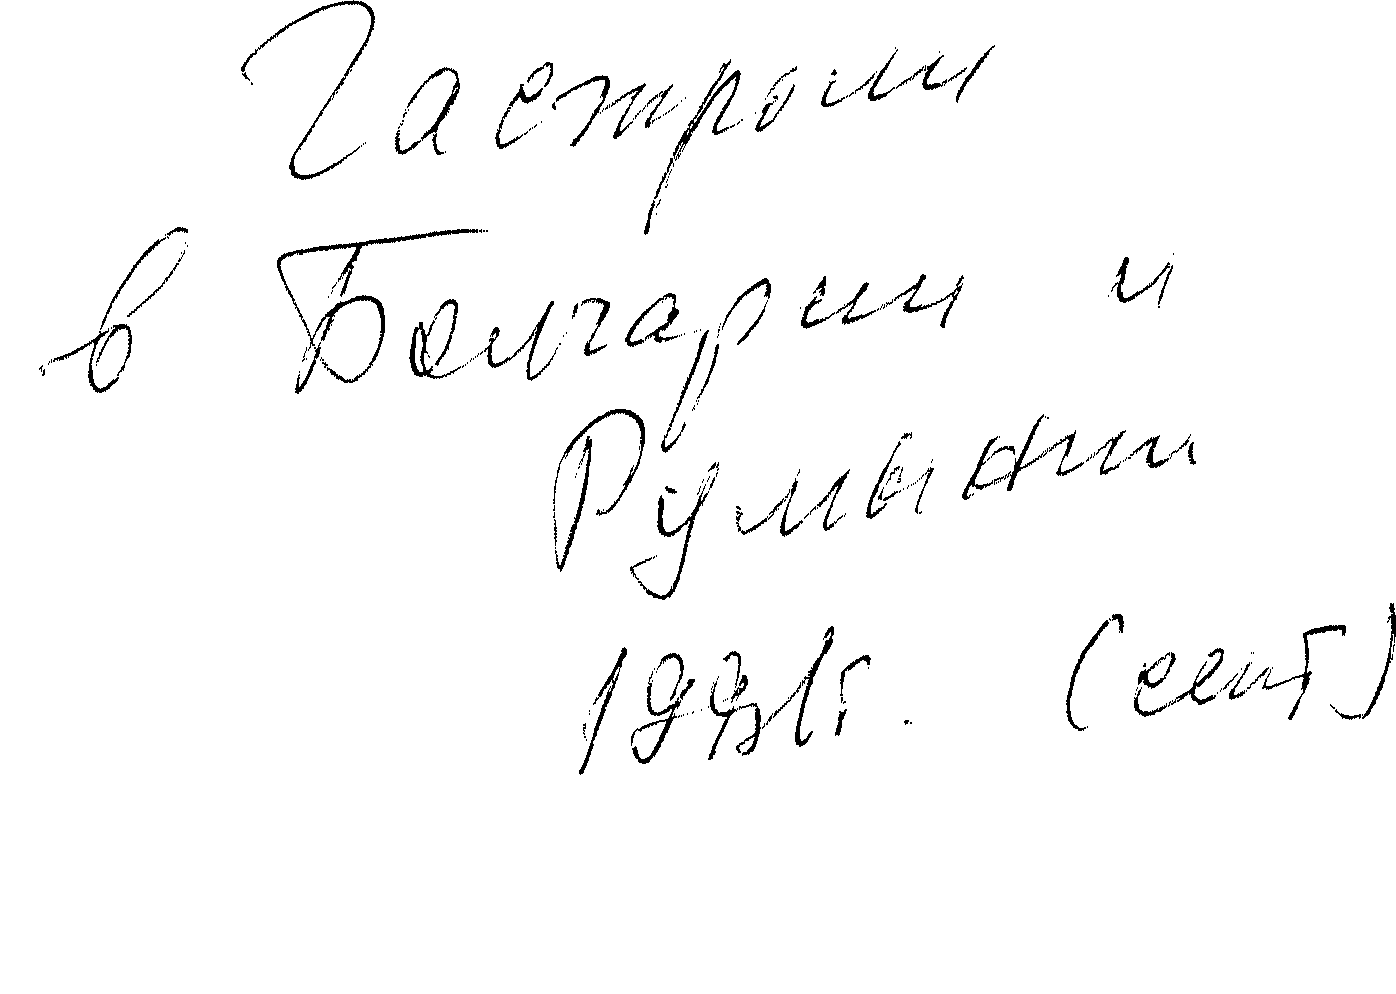 Гастроли
в Болгарии и
Румынии
1991г. (сент)